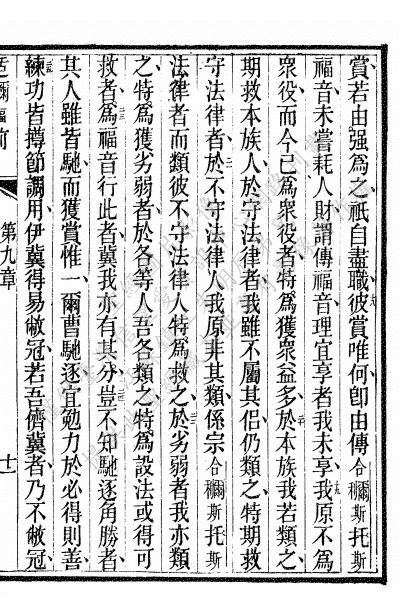 賞若由强為之祇自盡職彼賞唯何卽由傳合穪斯托斯
福音未嘗耗人財謂傳福音理宜享者我未享我原不為
衆役而今已為衆役者特為獲衆益多於本族我若類之
期救本族人於守法律者我雖不屬其侶仍類之特期救
守法律者於不守法律人我原非其類係宗合穪斯托斯
法律者而類彼不守法律人特為救之於劣弱者我亦類
之特為獲劣弱者於各等人吾各類之特為設法或得可
救者為福音行此者冀我亦有其分豈不知馳逐角勝者
其人雖皆馳而獲賞惟一爾曹馳逐宜勉力於必得則善
練功皆撙節調用伊冀得易敝冠若吾儕冀者乃不敝冠
第九章
十一